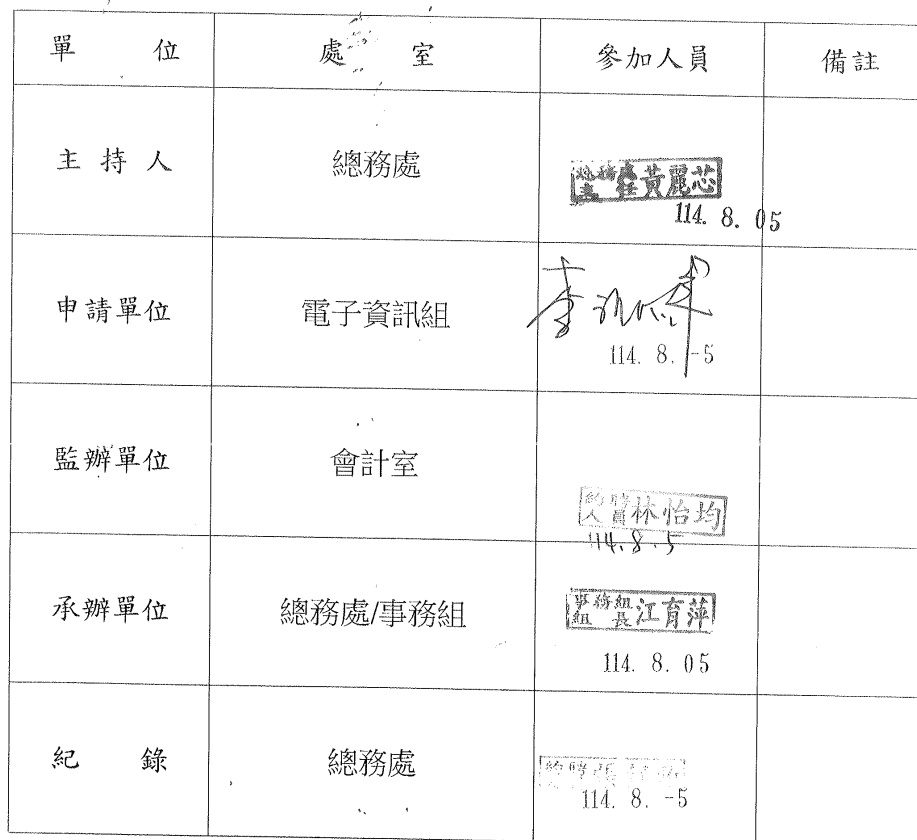 單 位 處 室 參加人員 備註
主 持 人 總務處 總務處主任黃麗芯
114. 8. 05
申請單位 電子資訊組 李
114. 8. -5
監辦單位 會計室 約聘人員林怡均
114.8.5
承辦單位 總務處/事務組 事務組組長江育萍
114. 8. 05
紀 錄 總務處 約聘
114. 8. -5